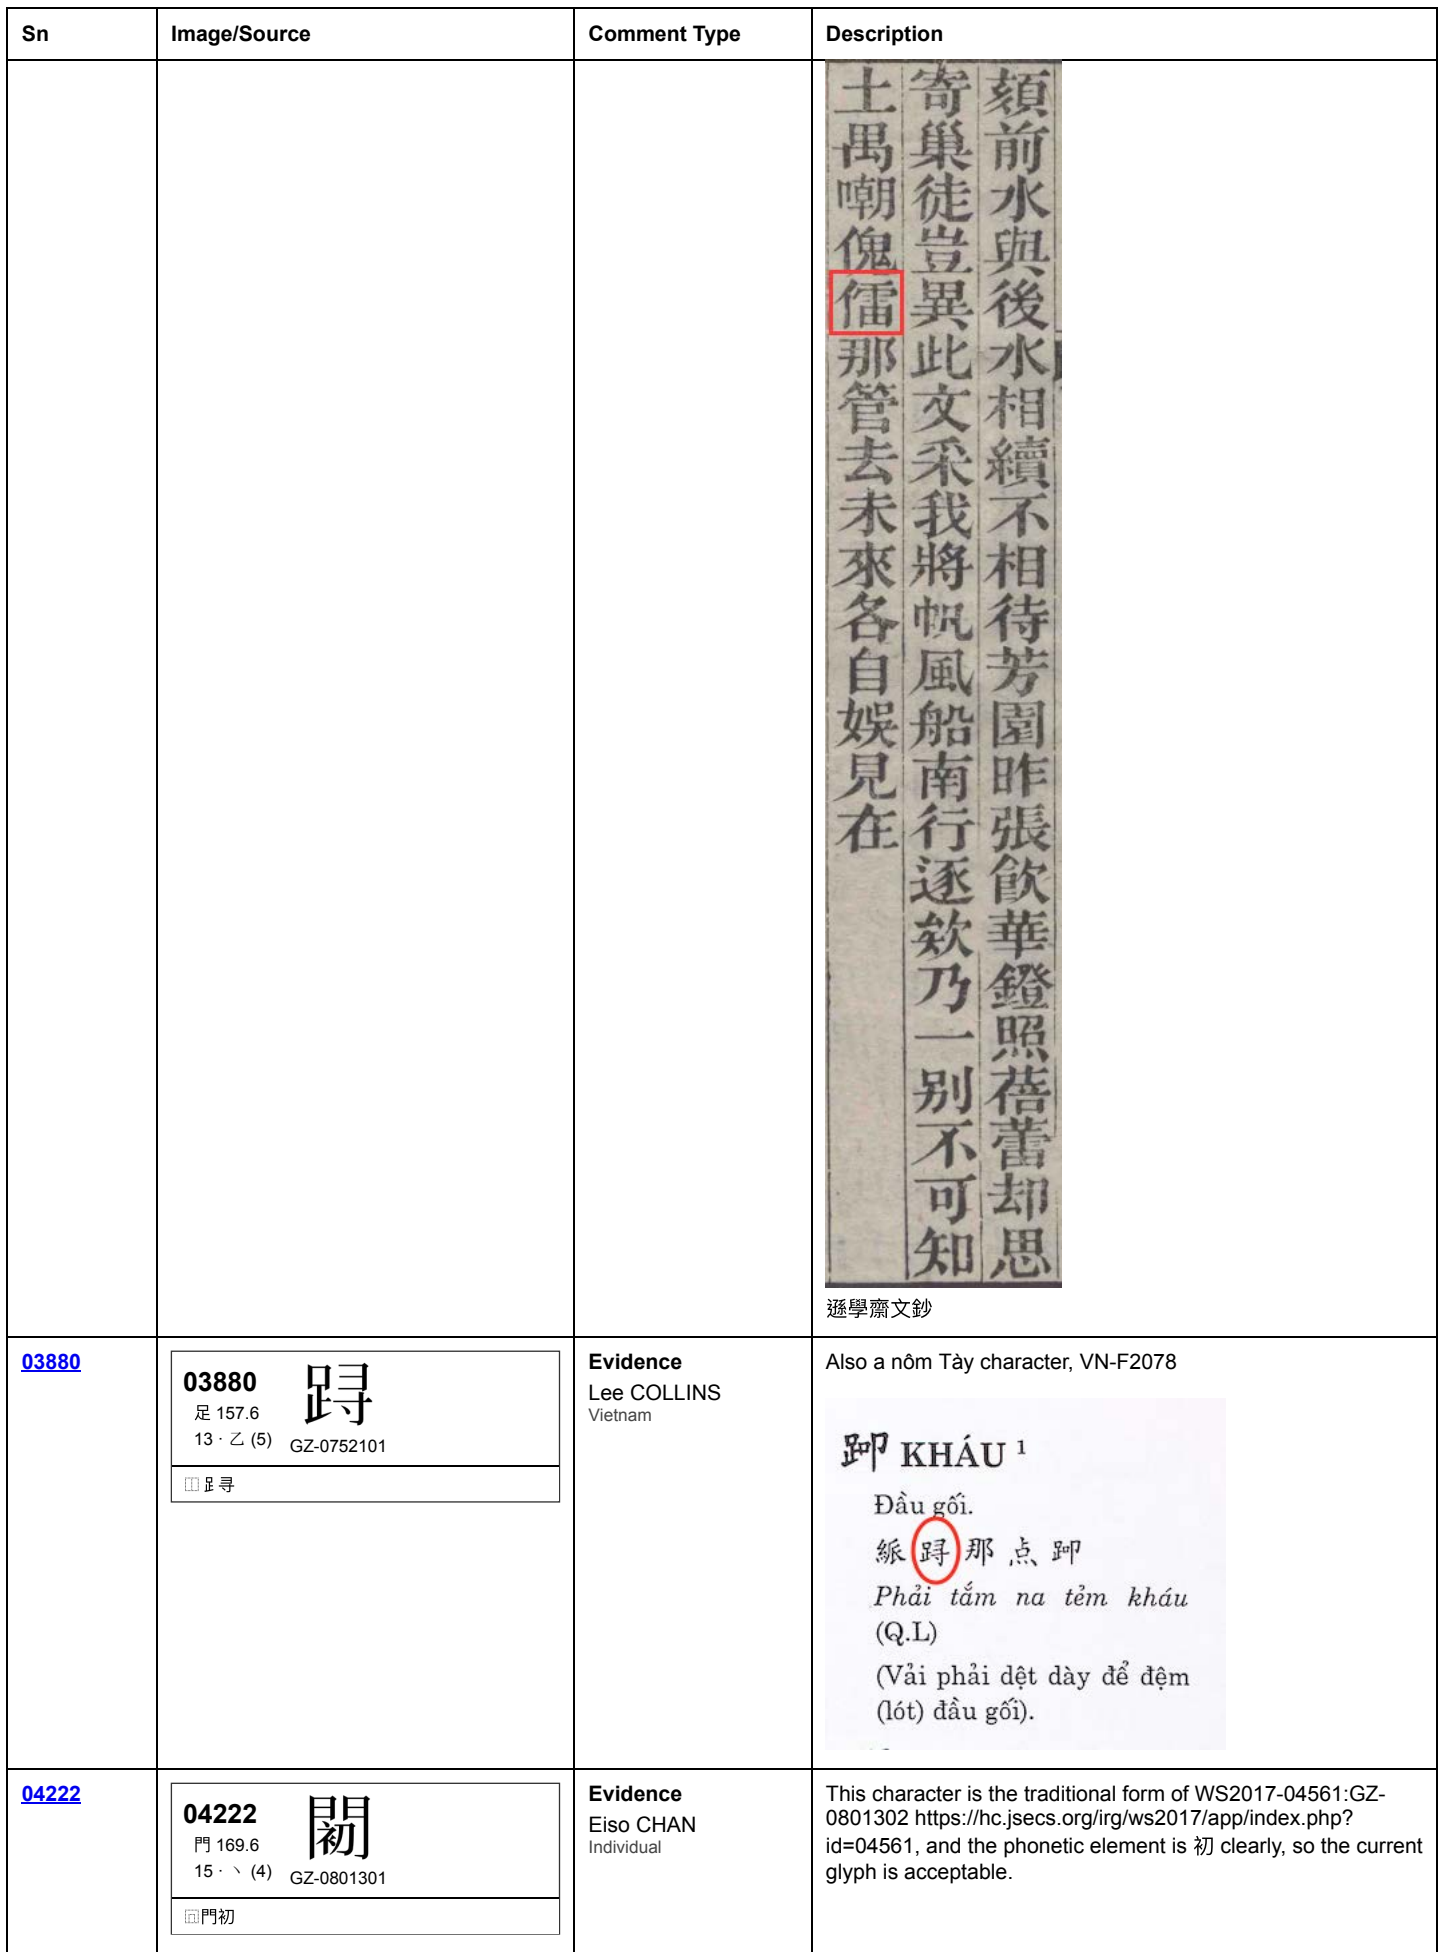 Sn
Image/Source
Comment Type
Description
前水與後水相續不相待芳園昨張飲華鐙照蓓蕾却思
寄巢徒豈異此文采我將帆風船南行逐欸乃一别不可知
土禺嘲傀那管去未來各自娛見在
遜學齋文鈔
03880
03880
足 157.6
13 · 乙 (5)
GZ-0752101
⿰𧾷寻
Evidence
Lee COLLINS
Vietnam
Also a nôm Tày character, VN-F2078
KHÁU ¹
Đầu gối.
那 点
Phải tắm na tẻm kháu
(Q.L)
(Vải phải dệt dày để đệm
(lót) đầu gối).
04222
04222
門 169.6
15 · 丶 (4)
GZ-0801301
⿵門初
Evidence
Eiso CHAN
Individual
This character is the traditional form of WS2017-04561:GZ-
0801302 https://hc.jsecs.org/irg/ws2017/app/index.php?
id=04561, and the phonetic element is 初 clearly, so the current
glyph is acceptable.